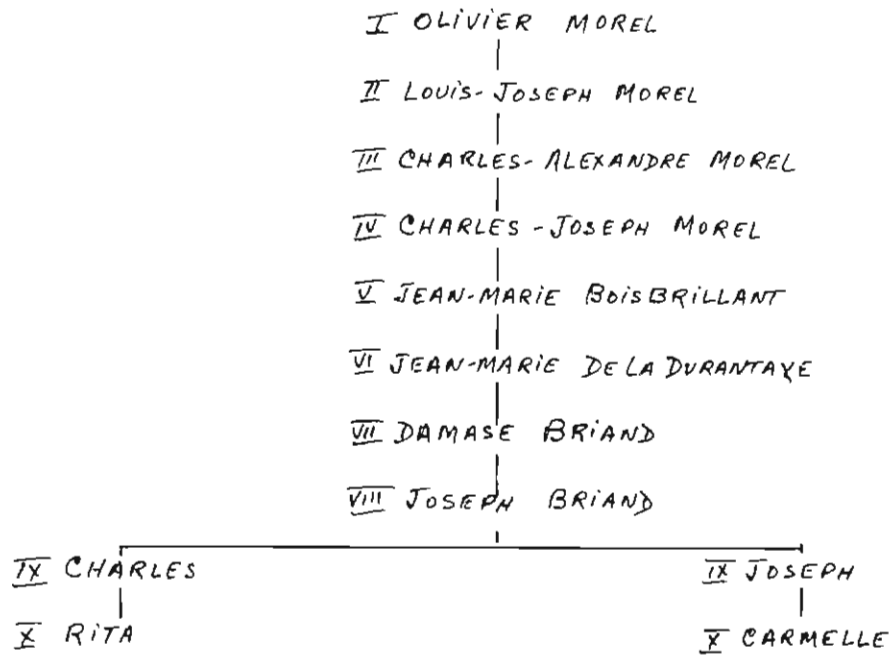 I OLIVIER MOREL
II LOUIS-JOSEPH MOREL
III CHARLES-ALEXANDRE MOREL
IV CHARLES-JOSEPH MOREL
V JEAN-MARIE BOISBRILLANT
VI JEAN-MARIE DE LA DURANTAYE
VII DAMASE BRIAND
VIII JOSEPH BRIAND
IX CHARLES IX JOSEPH
X RITA X CARMELLE